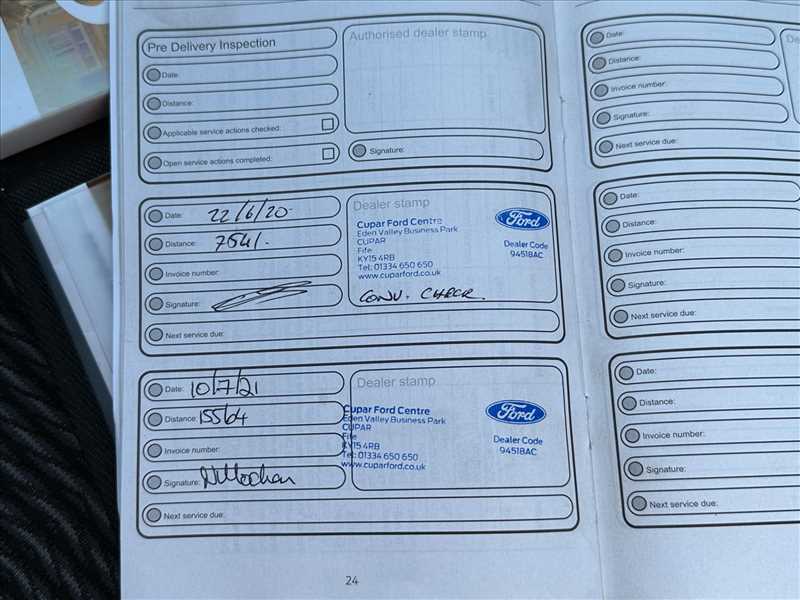 Pre Delivery Inspection
Date:
Distance:
Applicable service actions checked:
Open service actions completed:
Authorised dealer stamp
Signature:
Date: 22/6/20
Distance: 7541.
Invoice number:
Signature:
Next service due:
Dealer stamp
Cupar Ford Centre
Eden Valley Business Park
CUPAR
Fife
KY15 4RB
Tel: 01334 650 650
www.cuparford.co.uk
Ford
Dealer Code
94518AC
CONV. CHECK.
Date: 10/7/21
Distance: 15564
Invoice number:
Signature:
Next service due:
Dealer stamp
Cupar Ford Centre
Eden Valley Business Park
CUPAR
Fife
KY15 4RB
Tel: 01334 650 650
www.cuparford.co.uk
Ford
Dealer Code
94518AC
24
Date:
Distance:
Invoice number:
Signature:
Next service due:
De
Date:
Distance:
Invoice number:
Signature:
Next service due:
Date:
Distance:
Invoice number:
Signature:
Next service due: